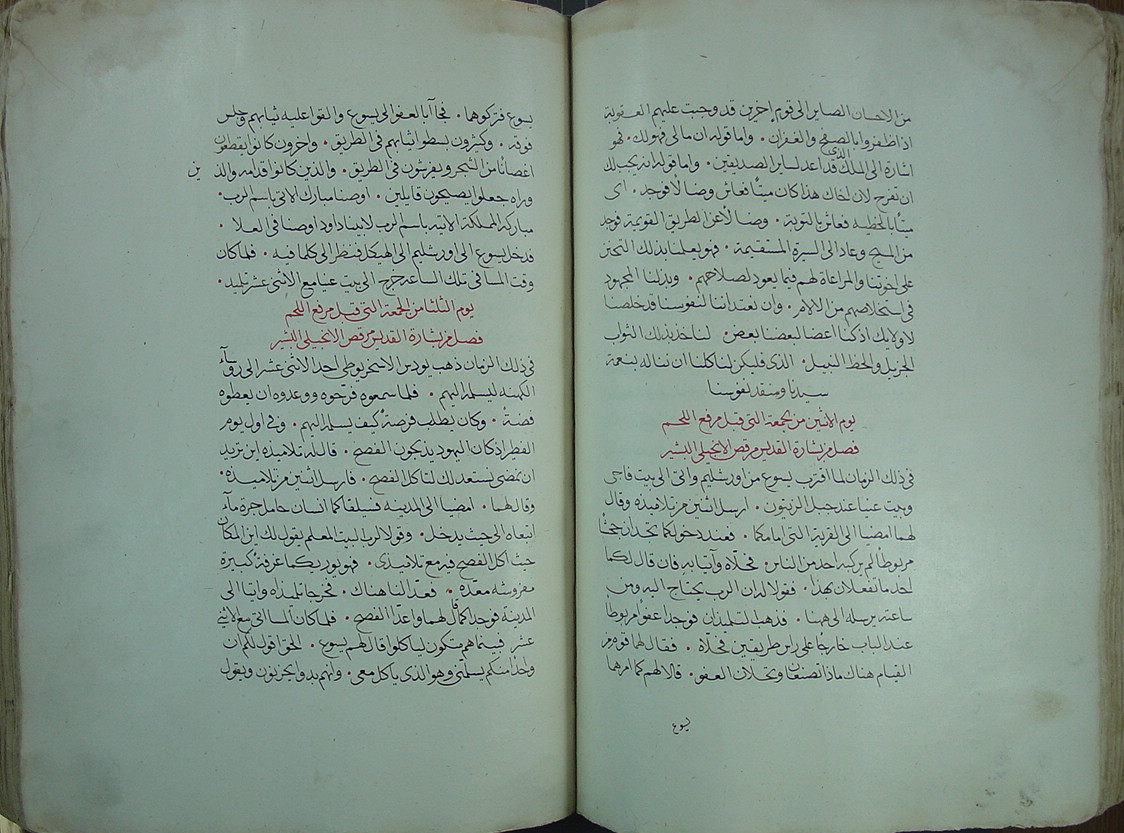 من الاحسان الصاير الى قوم اخرين قد وجبت عليهم العقوبة
اذا ظفروا بالصفح والغفران. واما قوله ان مالي فهو لك. فهو
اشارة الى الملك الذي قد اعد لساير الصديقين. واما قوله انه يجب لك
ان تفرح لان اخاك هذا كان ميتًا فعاش وضالا فوجد. اي
ميتًا بالخطيه فعاش بالتوبة. وضالا عن الطريق القويمة فوجد
من المسيح وعاد الى السيرة المستقيمة. فهو يعلمنا بذلك التحنن
على اخوتنا والمراعاة لهم فيما يعود لصلاحهم. وبذلنا المجهود
في استخلاصهم من الالام. وان نعتد اننا لنفوسنا قد خلصنا
لا وليك اذ كنا اعضا لبعضنا بعض. لناخذ بذلك الثواب
الجزيل والحظ النبيل. الذي فليكن لنا كلنا ان نناله بنعمة
سيدنا ومنقذ نفوسنا
يوم الاثنين من الجمعة التي قبل مرفع اللحم
فصل من بشارة القديس مرقص الانجيلي البشير
في ذلك الزمان لما اقترب يسوع من اورشليم واتى الى بيت فاجي
وبيت عنيا عند جبل الزيتون. ارسل اثنين من تلاميذه وقال
لهما امضيا الى القرية التي امامكما. فعند دخولكما تجدان جحشًا
مربوطًا لم يركبه احد من الناس. فحلاه وآتيا به فان قال لكما
احد ما تفعلان بهذا. فقولا له ان الرب يحتاج اليه ومن
ساعته يرسله الى ههنا. فذهب التلميذان فوجدا عفوًا مربوطًا
عند الباب خارجًا على راس طريقين فحلاه. فقال لهما قوم من
القيام هناك ماذا تصنعان وتحلان العفو. قالا لهم كما امرهما
يسوع
يسوع فتركوهما. فجآبا لعفو الى يسوع والقوا عليه ثيابهم وجلس
فوقه. وكثيرون بسطوا ثيابهم في الطريق. واخرون كانوا يقطعون
اغصانًا من الشجر ويفرشون في الطريق. والذين كانوا قدامه والذين
وراه جعلوا يصيحون قايلين. اوصنا مبارك الاتي باسم الرب.
مباركه المملكة الاتيه باسم الرب لابينا داود اوصنا في العلا.
فدخل يسوع الى اورشليم الى الهيكل فنظر الى كلما فيه. فلما كان
وقت المسا في تلك الساعه خرج الى بيت عنيا مع الاثني عشر تلميذ.
يوم الثلثا من الجمعة التي قبل مرفع اللحم
فصل من بشارة القديس مرقص الانجيلي البشير
في ذلك الزمان ذهب يودس الاسخريوطي احد الاثني عشر الى روسآ
الكهنه ليسلمه اليهم. فلما سمعوه فرحوه ووعدوه ان يعطوه
فضةً. وكان يطلب فرصةً كيف يسلمه اليهم. وفي اول يوم
الفطر اذ كان اليهود يذبحون الفصح. قال له تلاميذه اين تريد
ان نمضي نستعد لك لتاكل الفصح. فارسل اثنين من تلاميذه.
وقال لهما. امضيا الى المدينه فسيلقاكما انسان حامل جرة مآء
اتبعاه الى حيث يدخل. وقولا لرب البيت المعلم يقول لك اين المكان
حيث اكل الفصح فيه مع تلاميذي. فهو يوريكما غرفةً كبيرة
مفروشه معدّه. فعدّا لنا هناك. فخرجا تلميذاه واتيا الى
المدينة فوجدا كما قال لهما واعدّا الفصح. فلما كان المسا اتى مع الاثني
عشر. فبينما هم متكون لياكلوا قال لهم يسوع. الحق اقول لكم ان
واحدًا منكم يسلمني وهو الذي ياكل معي. وانهم بدوا يحزنون ويقول